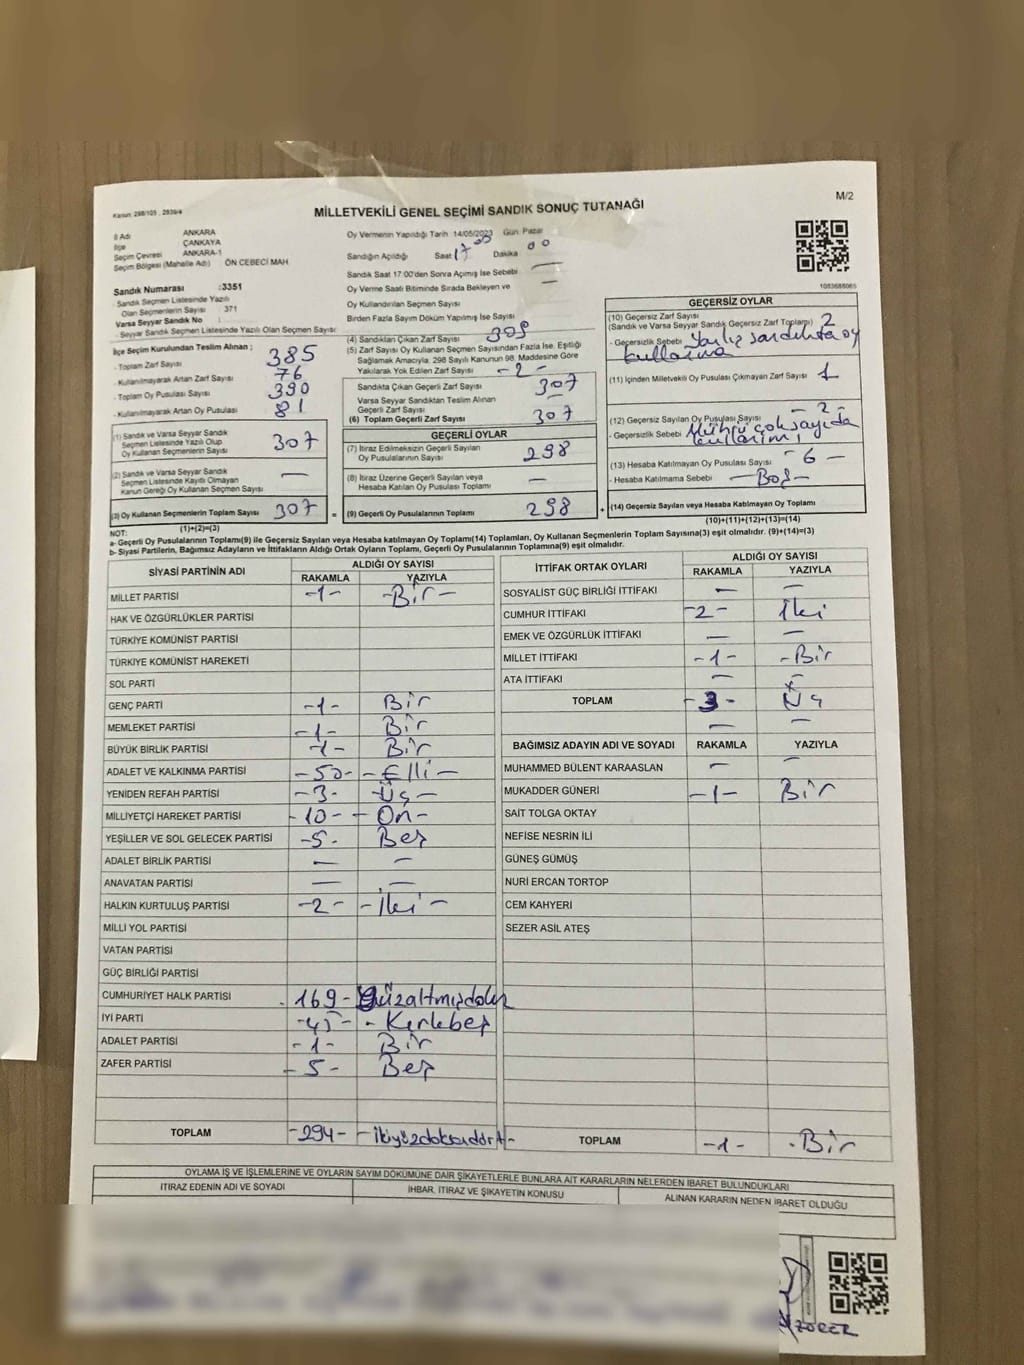 M/2
Kanun: 298/105 , 2839/4
MİLLETVEKİLİ GENEL SEÇİMİ SANDIK SONUÇ TUTANAĞI
İl Adı ANKARA
İlçe ÇANKAYA
Seçim Çevresi ANKARA-1
Seçim Bölgesi (Mahalle Adı) ÖN CEBECİ MAH
Sandık Numarası :3351
Sandık Seçmen Listesinde Yazılı
Olan Seçmenlerin Sayısı : 371
Varsa Seyyar Sandık No :
- Seyyar Sandık Seçmen Listesinde Yazılı Olan Seçmen Sayısı
İlçe Seçim Kurulundan Teslim Alınan ;
- Toplam Zarf Sayısı 385
- Kullanılmayarak Artan Zarf Sayısı 76
- Toplam Oy Pusulası Sayısı 390
- Kullanılmayarak Artan Oy Pusulası 81
(1) Sandık ve Varsa Seyyar Sandık
Seçmen Listesinde Yazılı Olup
Oy Kullanan Seçmenlerin Sayısı 307
(2) Sandık ve Varsa Seyyar Sandık
Seçmen Listesinde Kayıtlı Olmayan
Kanun Gereği Oy Kullanan Seçmen Sayısı —
(3) Oy Kullanan Seçmenlerin Toplam Sayısı 307
(1)+(2)=(3)
Oy Vermenin Yapıldığı Tarih 14/05/2023 Gün: Pazar
Sandığın Açıldığı Saat 17 Dakika 00
Sandık Saat 17:00'den Sonra Açılmış İse Sebebi —
Oy Verme Saati Bitiminde Sırada Bekleyen ve —
Oy Kullandırılan Seçmen Sayısı
Birden Fazla Sayım Döküm Yapılmış İse Sayısı
(4) Sandıktan Çıkan Zarf Sayısı 309
(5) Zarf Sayısı Oy Kullanan Seçmen Sayısından Fazla İse, Eşitliği
Sağlamak Amacıyla, 298 Sayılı Kanunun 98. Maddesine Göre
Yakılarak Yok Edilen Zarf Sayısı -2-
Sandıkta Çıkan Geçerli Zarf Sayısı 307
Varsa Seyyar Sandıktan Teslim Alınan
Geçerli Zarf Sayısı
(6) Toplam Geçerli Zarf Sayısı 307
GEÇERLİ OYLAR
(7) İtiraz Edilmeksizin Geçerli Sayılan
Oy Pusulalarının Sayısı 298
(8) İtiraz Üzerine Geçerli Sayılan veya
Hesaba Katılan Oy Pusulası Toplamı —
= (9) Geçerli Oy Pusulalarının Toplamı 298
1083688065
GEÇERSİZ OYLAR
(10) Geçersiz Zarf Sayısı
(Sandık ve Varsa Seyyar Sandık Geçersiz Zarf Toplamı) 2
- Geçersizlik Sebebi Yanlış sandıkta oy
kullanma
(11) İçinden Milletvekili Oy Pusulası Çıkmayan Zarf Sayısı 1
(12) Geçersiz Sayılan Oy Pusulası Sayısı -2-
- Geçersizlik Sebebi Mührü çok sayıda
kullanım
(13) Hesaba Katılmayan Oy Pusulası Sayısı -6-
- Hesaba Katılmama Sebebi —Boş—
+ (14) Geçersiz Sayılan veya Hesaba Katılmayan Oy Toplamı
(10)+(11)+(12)+(13)=(14)
NOT:
a- Geçerli Oy Pusulalarının Toplamı(9) ile Geçersiz Sayılan veya Hesaba katılmayan Oy Toplamı(14) Toplamları, Oy Kullanan Seçmenlerin Toplam Sayısına(3) eşit olmalıdır. (9)+(14)=(3)
b- Siyasi Partilerin, Bağımsız Adayların ve İttifakların Aldığı Ortak Oyların Toplamı, Geçerli Oy Pusulalarının Toplamına(9) eşit olmalıdır.
SİYASİ PARTİNİN ADI ALDIĞI OY SAYISI
RAKAMLA YAZIYLA
MİLLET PARTİSİ -1- -Bir-
HAK VE ÖZGÜRLÜKLER PARTİSİ
TÜRKİYE KOMÜNİST PARTİSİ
TÜRKİYE KOMÜNİST HAREKETİ
SOL PARTİ
GENÇ PARTİ -1- Bir
MEMLEKET PARTİSİ -1- Bir
BÜYÜK BİRLİK PARTİSİ -1- Bir
ADALET VE KALKINMA PARTİSİ -50- -Elli-
YENİDEN REFAH PARTİSİ -3- -Üç-
MİLLİYETÇİ HAREKET PARTİSİ -10- -On-
YEŞİLLER VE SOL GELECEK PARTİSİ -5- Beş
ADALET BİRLİK PARTİSİ — —
ANAVATAN PARTİSİ — —
HALKIN KURTULUŞ PARTİSİ -2- -İki-
MİLLİ YOL PARTİSİ
VATAN PARTİSİ
GÜÇ BİRLİĞİ PARTİSİ
CUMHURİYET HALK PARTİSİ -169- yüzaltmışdokuz
İYİ PARTİ -45- -Kırkbeş
ADALET PARTİSİ -1- Bir
ZAFER PARTİSİ -5- Beş
TOPLAM -294- -ikiyüzdoksandört-
İTTİFAK ORTAK OYLARI ALDIĞI OY SAYISI
RAKAMLA YAZIYLA
SOSYALİST GÜÇ BİRLİĞİ İTTİFAKI — —
CUMHUR İTTİFAKI -2- İki
EMEK VE ÖZGÜRLÜK İTTİFAKI — —
MİLLET İTTİFAKI -1- -Bir
ATA İTTİFAKI — —
TOPLAM -3- Üç
— —
BAĞIMSIZ ADAYIN ADI VE SOYADI RAKAMLA YAZIYLA
MUHAMMED BÜLENT KARAASLAN — —
MUKADDER GÜNERİ -1- Bir
SAİT TOLGA OKTAY
NEFİSE NESRİN İLİ
GÜNEŞ GÜMÜŞ
NURİ ERCAN TORTOP
CEM KAHYERİ
SEZER ASİL ATEŞ
TOPLAM -1- -Bir
OYLAMA İŞ VE İŞLEMLERİNE VE OYLARIN SAYIM DÖKÜMÜNE DAİR ŞİKAYETLERLE BUNLARA AİT KARARLARIN NELERDEN İBARET BULUNDUKLARI
İTİRAZ EDENİN ADI VE SOYADI İHBAR, İTİRAZ VE ŞİKAYETİN KONUSU ALINAN KARARIN NEDEN İBARET OLDUĞU